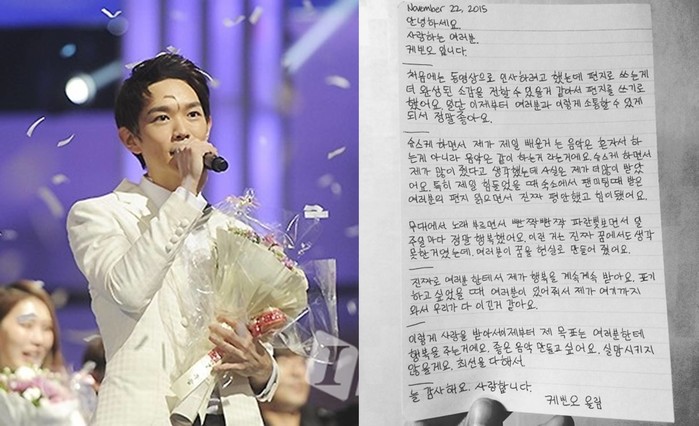 November 22, 2015
안녕하세요.
사랑하는 여러분.
케빈오 입니다.
처음에는 동영상으로 인사하려고 했는데 편지로 쓰는게
더 완성된 소감을 전할 수 있을거 같아서 편지를 쓰기로
했어요. 일단 이제부터 여러분과 이렇게 소통할 수 있게
되서 정말 좋아요.
슈스케 하면서 제가 제일 배운거는 음악은 혼자서 하
는게 아니라 음악은 같이 하는거 라는거에요. 슈스케 하면서
제가 많이 줬다고 생각했는데 사실은 제가 더 많이 받았
어요. 특히 제일 힘들었을 때 숙소에서 팬미팅때 받은
여러분의 편지 읽으면서 진짜 편안했고 힘이됐어요.
무대에서 노래 부르면서 빤짝빤짝 파란빛보면서 일
주일마다 정말 행복했어요. 이런 거는 진짜 꿈에서도 생각
못한거였는데, 여러분이 꿈을 현실로 만들어 줬어요.
진짜로 여러분 한테서 제가 행복을 계속계속 받아요. 포기
하고 싶었을 때 여러분이 있어줘서 제가 여기까지
와서 우리가 다 이긴거 같아요.
이렇게 사랑을 받아서 이제부터 제 목표는 여러분한테
행복을 주는거에요. 좋은 음악 만들고 싶어요. 실망시키지
않을게요. 최선을 다해서.
늘 감사해요. 사랑합니다.
케빈오 올림